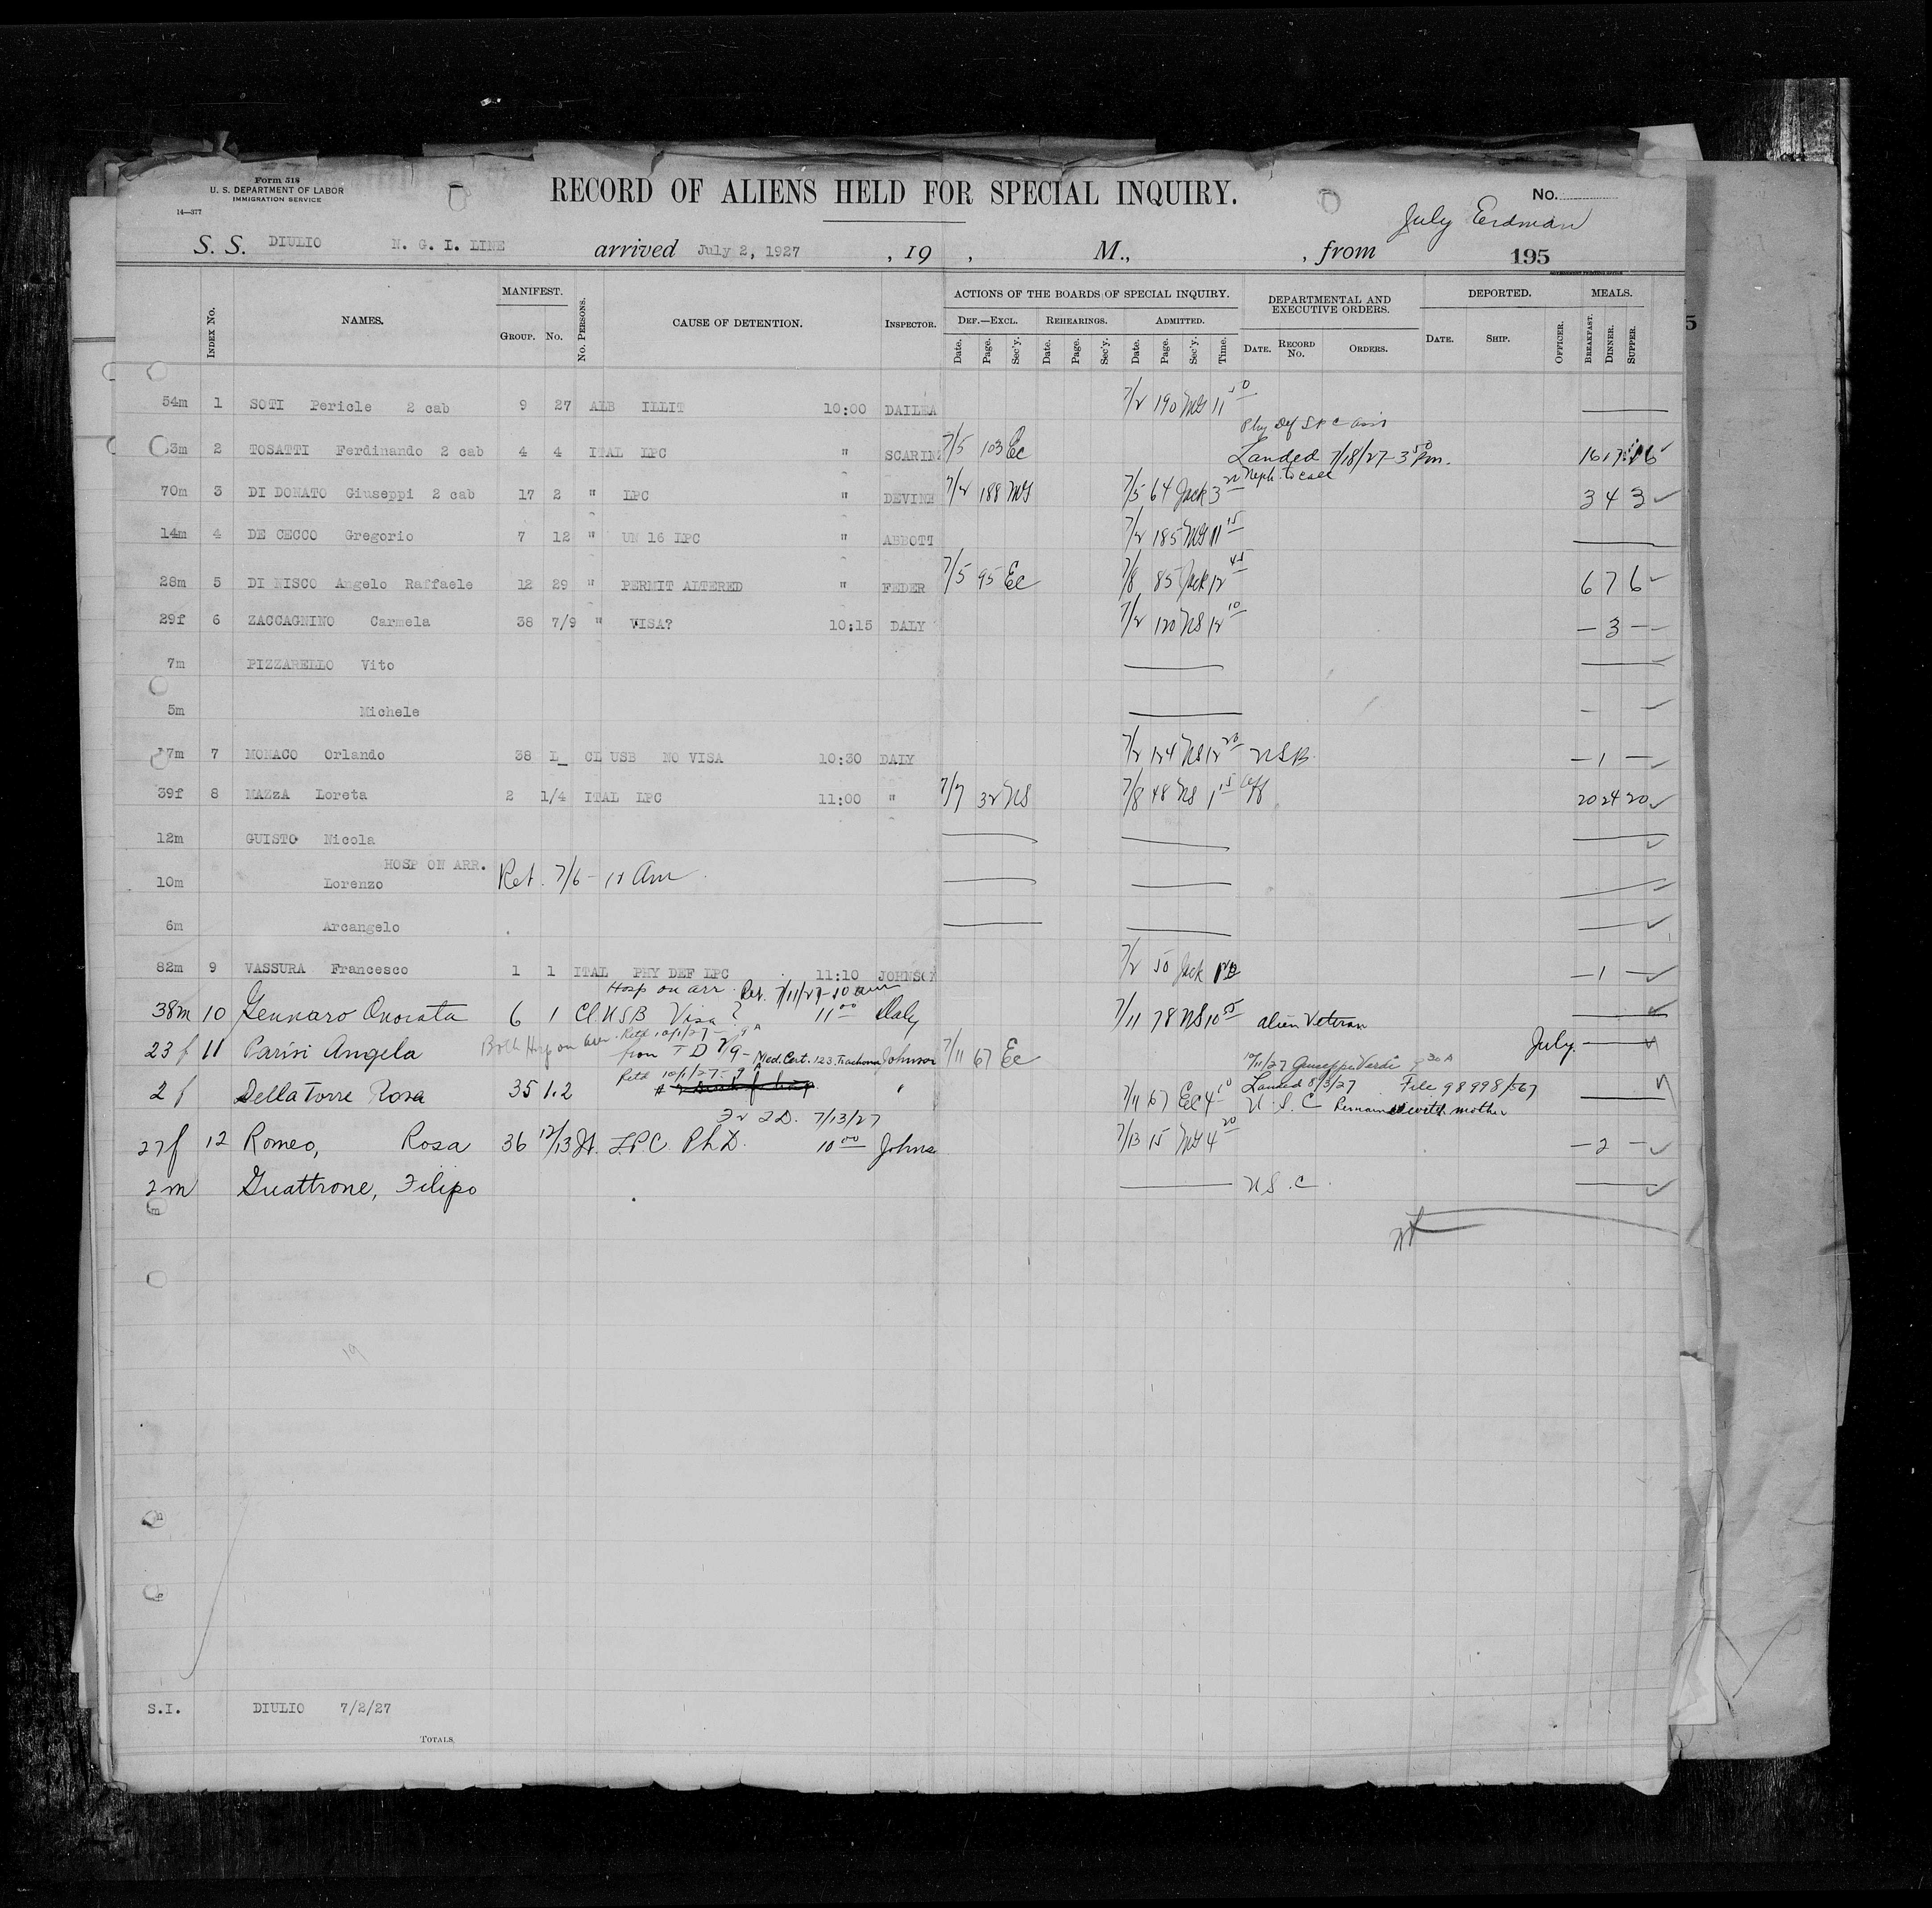 Form 518
U. S. DEPARTMENT OF LABOR
IMMIGRATION SERVICE
14—377
RECORD OF ALIENS HELD FOR SPECIAL INQUIRY.
No.
July Erdman
S. S. DIULIO N. G. I. LINE arrived July 2, 1927 , 19 , M., , from 195
INDEX No. NAMES. MANIFEST. GROUP. No. No. PERSONS. CAUSE OF DETENTION. INSPECTOR. ACTIONS OF THE BOARDS OF SPECIAL INQUIRY. DEPARTMENTAL AND EXECUTIVE ORDERS. DEPORTED. MEALS.
DEF.—EXCL. REHEARINGS. ADMITTED.
Date. Page. Sec'y. Date. Page. Sec'y. Date. Page. Sec'y. Time. DATE. RECORD No. ORDERS. DATE. SHIP. OFFICER. BREAKFAST. DINNER. SUPPER.
54m 1 SOTI Pericle 2 cab 9 27 ALB ILLIT 10:00 DAILEA 7/2 190 MG 11 50
Phy Def LPC
3m 2 TOSATTI Ferdinando 2 cab 4 4 ITAL LPC " SCARIN 7/5 103 Ec Landed 7/18/27 - 3 50 Pm. 16 17 16
70m 3 DI DONATO Giuseppi 2 cab 17 2 " LPC " DEVINE 7/2 188 MG 7/5 64 Jack 3 20 Neph. to call 3 4 3
14m 4 DE CECCO Gregorio 7 12 " UN 16 LPC " ABBOTT 7/2 185 MG 11 15
28m 5 DI NISCO Angelo Raffaele 12 29 " PERMIT ALTERED " FEDER 7/5 95 Ec 7/8 85 Jack 12 45 6 7 6
29f 6 ZACCAGNINO Carmela 38 7/9 " VISA? 10:15 DALY 7/2 120 NS 12 10 — 3 —
7m PIZZARELLO Vito
5m Michele
17m 7 MONACO Orlando 38 L_ CL USB NO VISA 10:30 DALY 7/2 124 NS 12 20 USB — 1 —
39f 8 MAZZA Loreta 2 1/4 ITAL LPC 11:00 " 7/7 32 NS 7/8 48 NS 1 15 Aff 20 24 20
12m GUISTO Nicola
HOSP ON ARR.
10m Lorenzo Ret. 7/6 - 11 Am
6m Arcangelo
82m 9 VASSURA Francesco 1 1 ITAL PHY DEF LPC 11:10 JOHNSON 7/2 50 Jack — 1 —
Hosp on arr. Ret. 7/11/27 - 10 am
38m 10 Gennaro Onorata 6 1 Cl. USB Visa? 11 00 Daly 7/11 78 NS 10 alien Veteran
Both Hosp on arr. Retd 10/1/27 - 9 A
23 f 11 Parisi Angela from T D 7/9 - Med. Cert. 123. Trachoma Johnson 7/11 67 Ec July.
10/11/27 Giuseppe Verdi 9 30 A
Retd 10/1/27 - 9 A Landed 8/3/27 File 98998/567
2 f Della Torre Rosa 35 1.2 " 7/11 67 Ec 4 10 U. S. C Remained with mother
7/13/27
27f 12 Romeo, Rosa 36 12/13 It. L.P.C. Ph D. 10 00 Johns 7/13 15 MG 4 20 — 2 —
2m Guattrone, Filipo U S. C.
19
S.I. DIULIO 7/2/27
TOTALS.